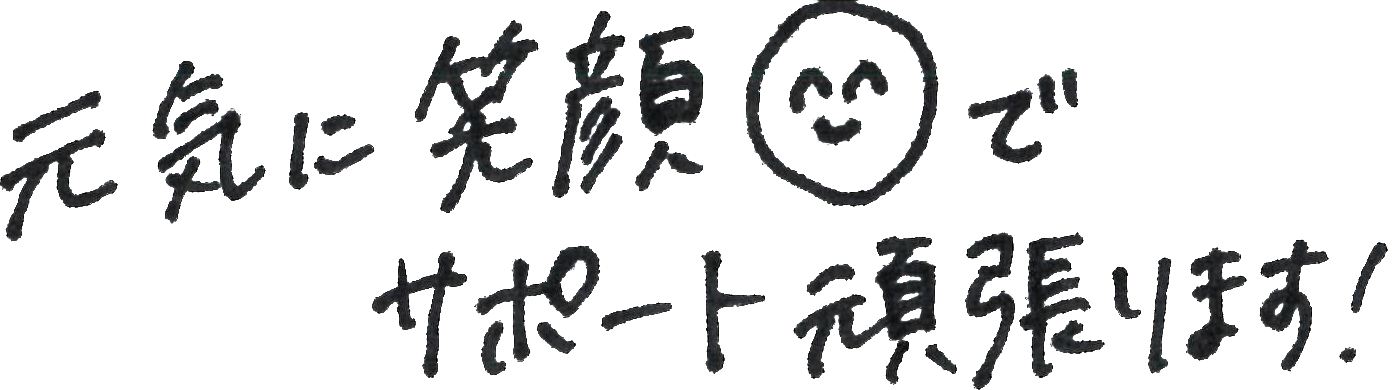 元気に笑顔😊で
サポート頑張ります!